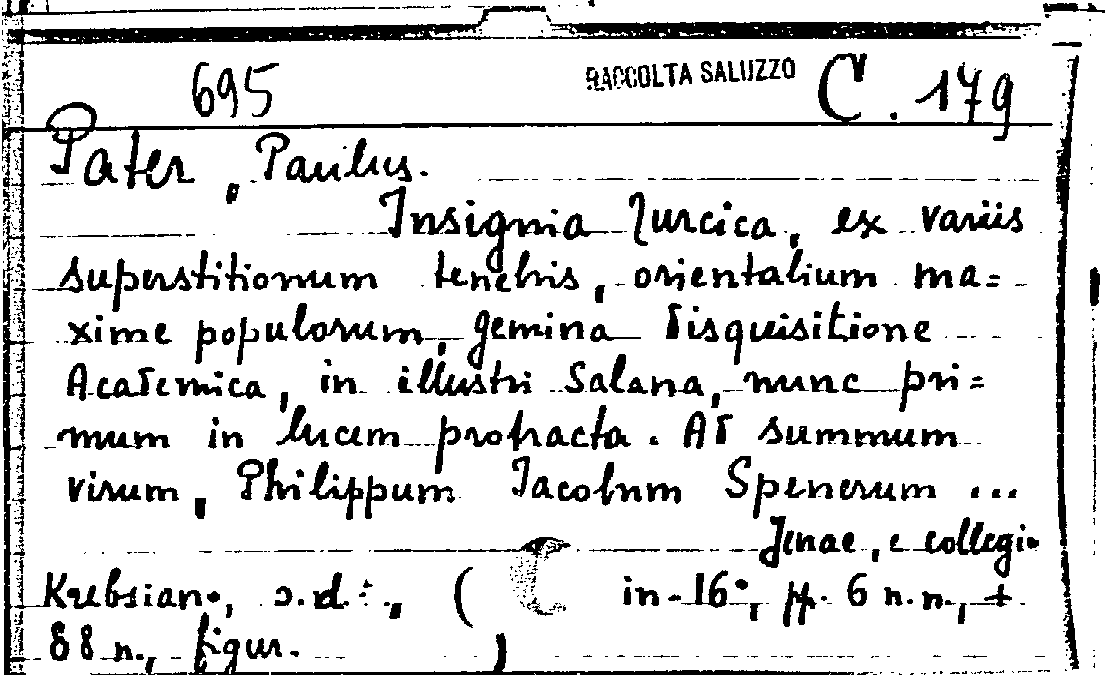 695 RACCOLTA SALUZZO C. 179
Pater, Paulus.
Insignia Turcica, ex variis
superstitionum tenebris, orientalium ma=
xime populorum, gemina disquisitione
Academica, in illustri Salana, nunc pri=
mum in lucem protracta. Ad summum
virum, Philippum Jacobum Spenerum ...
Jenae, e collegio
Krebsiano, s.d., ( in-16°, pp. 6 n.n., +
88 n., figur. )